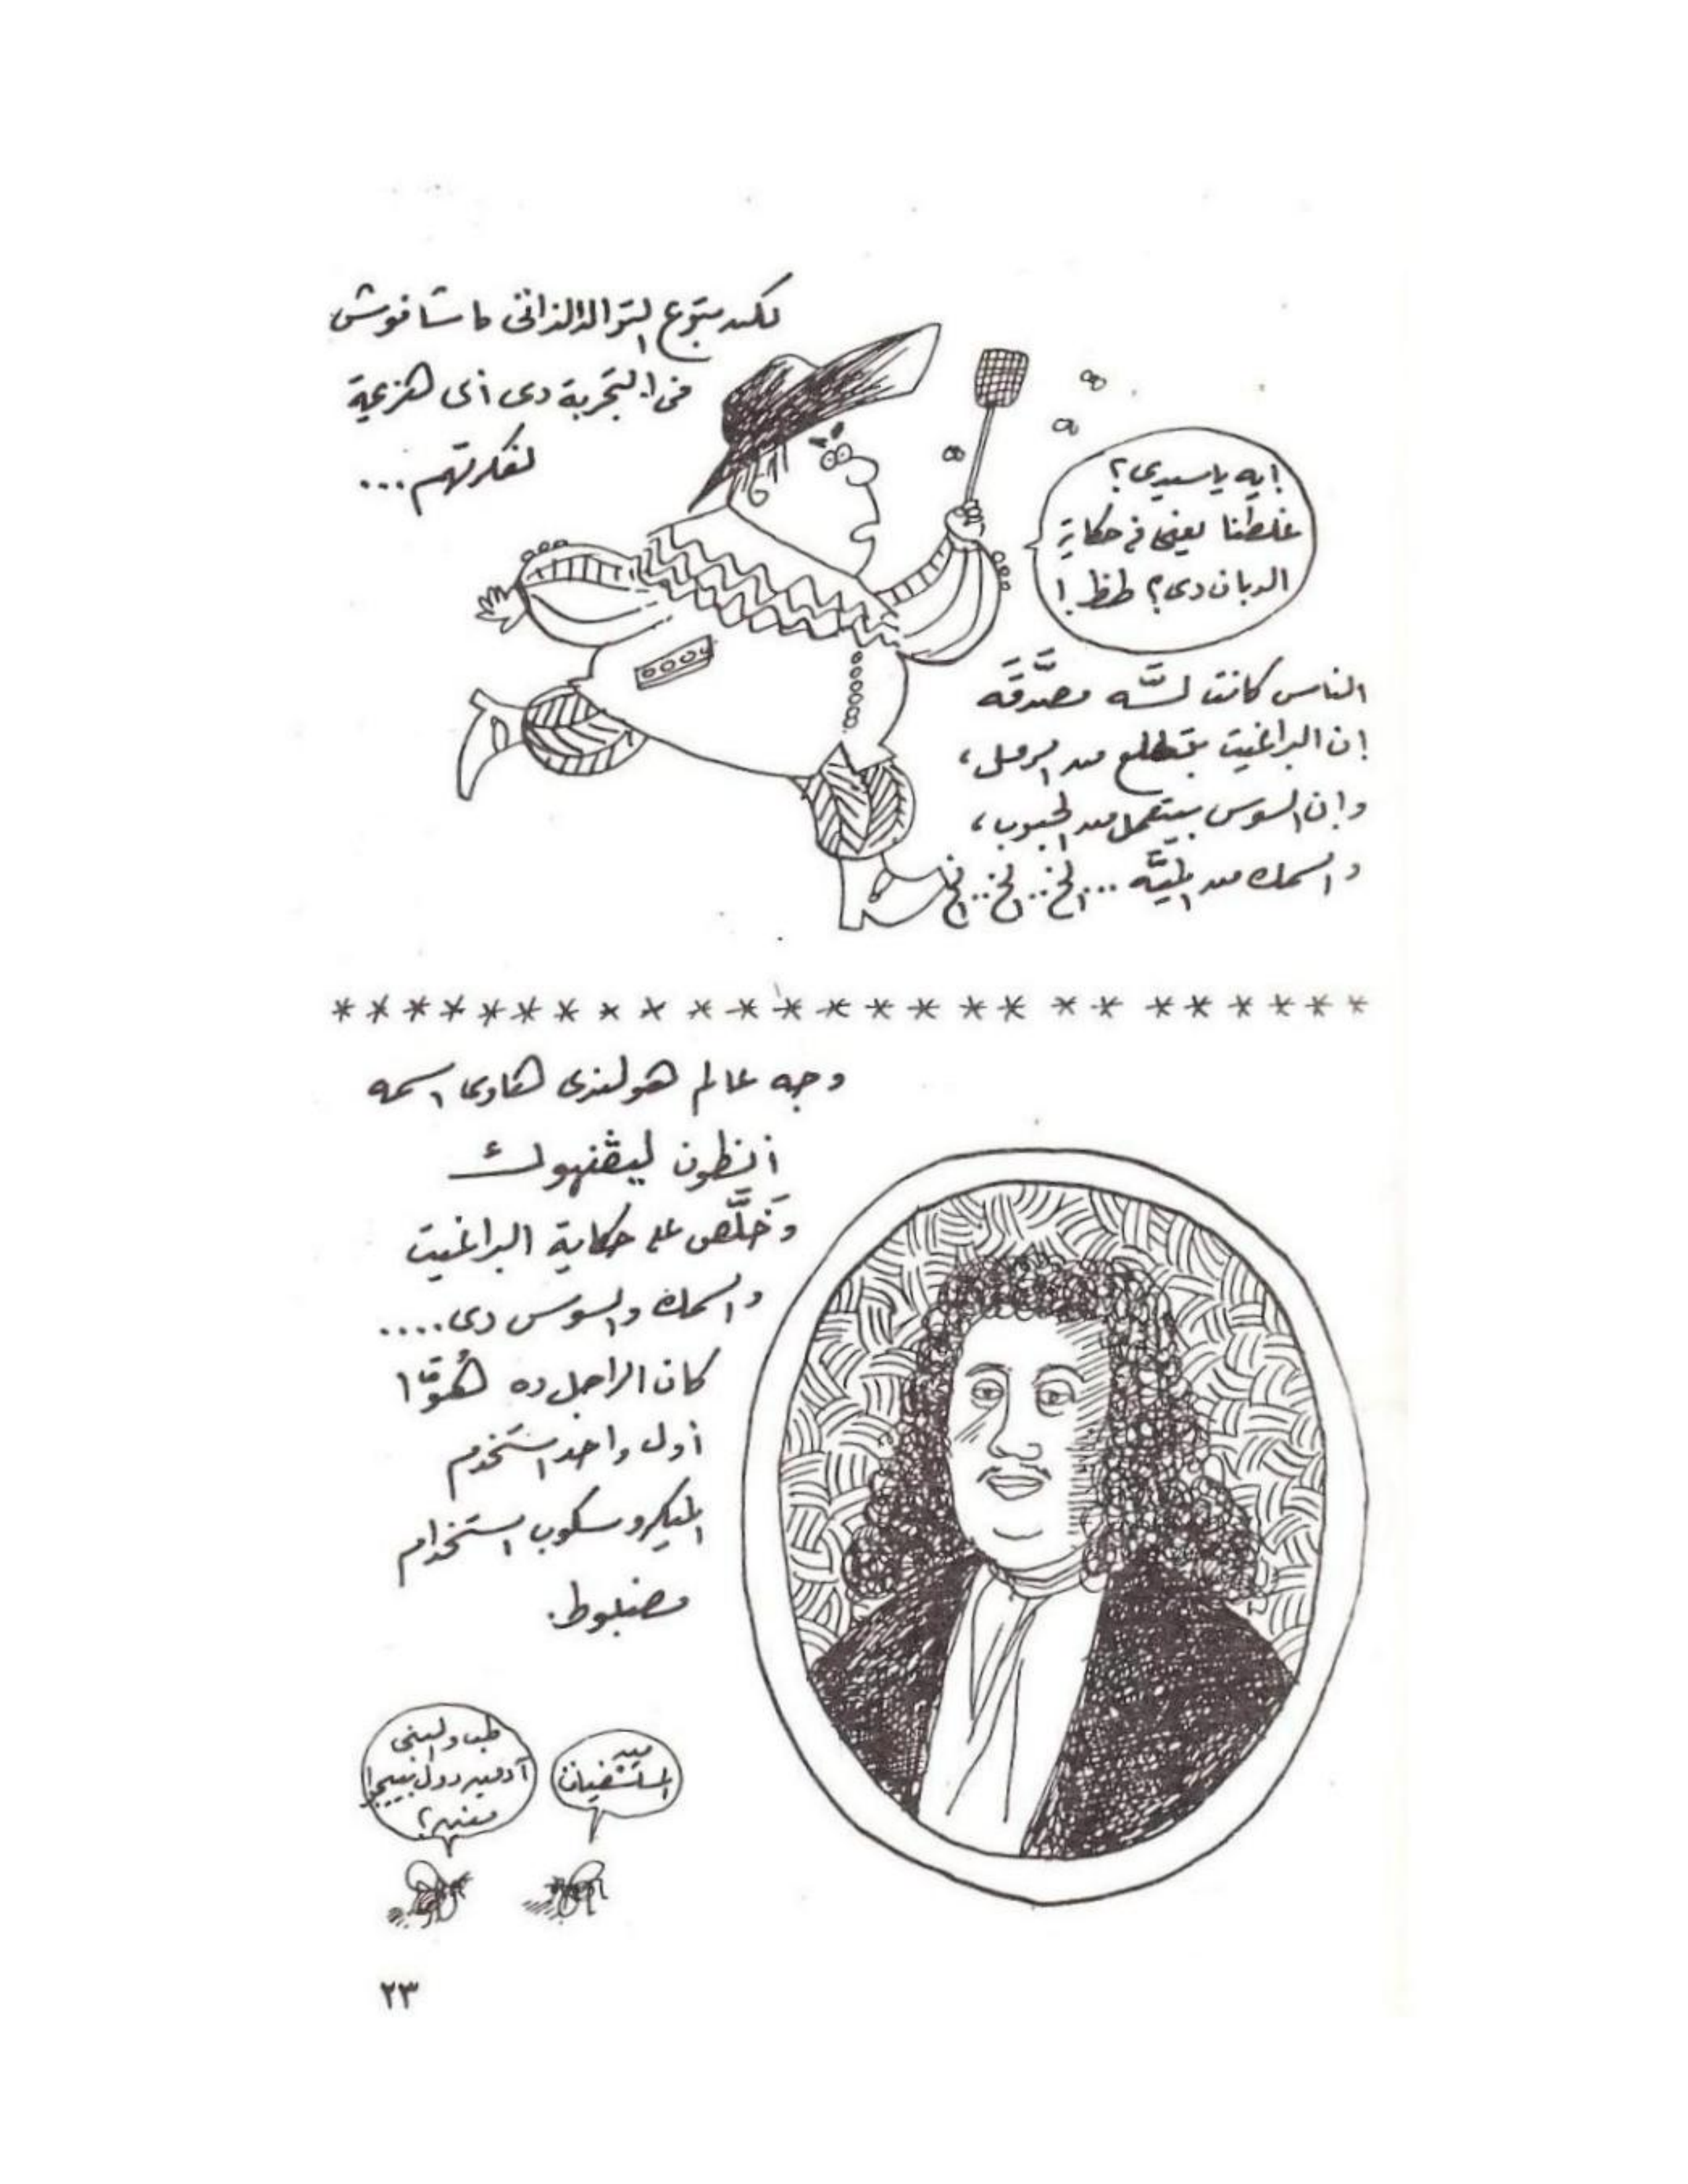 لكن بتوع التوالد الذاتى ما شافوش
فى التجربة دى أى هزيمة
لفكرتهم...
إيه ياسيدى؟
غلطنا يعنى فى حكاية
الدبان دى؟ طظ!
الناس كانت لسَّه مصدَّقَه
إن البراغيت بتطلع من الرمل،
وإن السوس بيتعمل من الحبوب،
والسمك من الميَّه... الخ.. الخ.. الخ
* * * * * * * * * * * * * * * * * * * * * * * * * *
وجه عالم هولندى هاوى اسمه
أنطون ليڤنهوك
وَخلَّص على حكاية البراغيت
والسمك والسوس دى....
كان الراجل ده هُوَّا
أول واحد استخدم
الميكروسكوب استخدام
مضبوط.
من
المستشفيات
طب والبنى
آدمين دول بييجوا
منين؟
٢٣